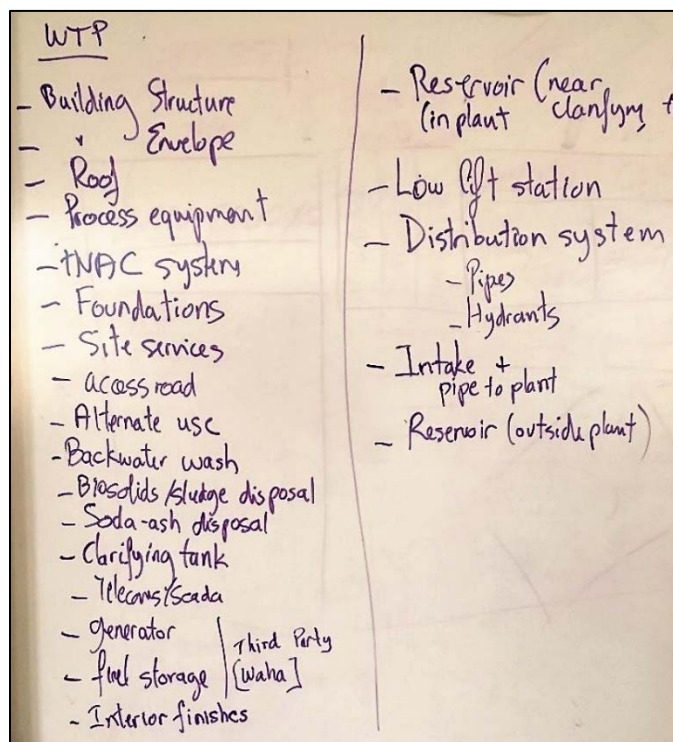 WTP
- Building Structure
- " Envelope
- Roof
- Process equipment
- HVAC system
- Foundations
- Site services
- access road
- Alternate use
- Backwater wash
- Biosolids/sludge disposal
- Soda-ash disposal
- Clarifying tank
- Telecoms/Scada
- generator
- fuel storage
Third Party
[Waha]
- Interior finishes
- Reservoir (near
(in plant clarifying t
- Low lift station
- Distribution system
- Pipes
- Hydrants
- Intake +
pipe to plant
- Reservoir (outside plant)